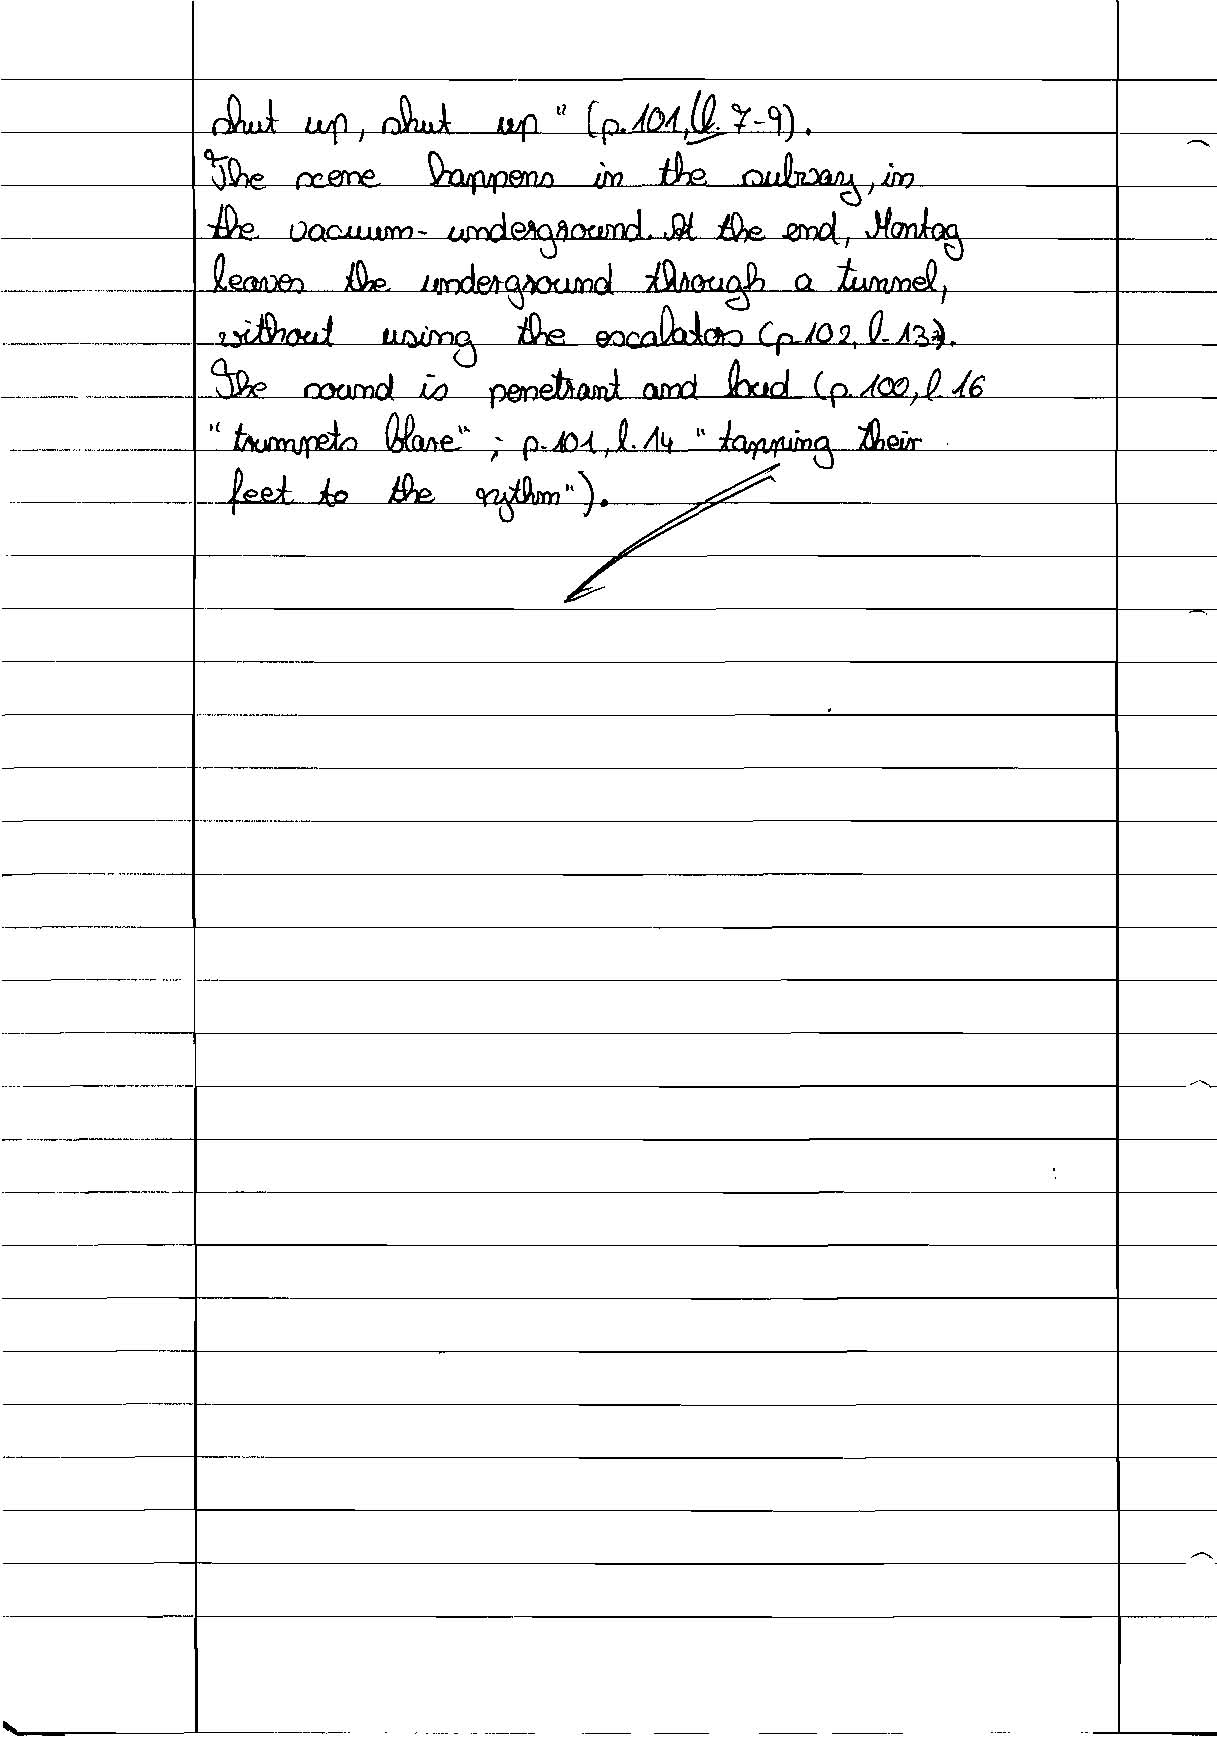 shut up, shut up" (p.101, ll. 7-9).
The scene happens in the subway, in
the vacuum-underground. At the end, Montag
leaves the underground through a tunnel,
without using the escalators (p.102, l.13).
The sound is penetrant and loud (p.100, l.16
"trumpets blare"; p.101, l.14 "tapping their
feet to the rythm").